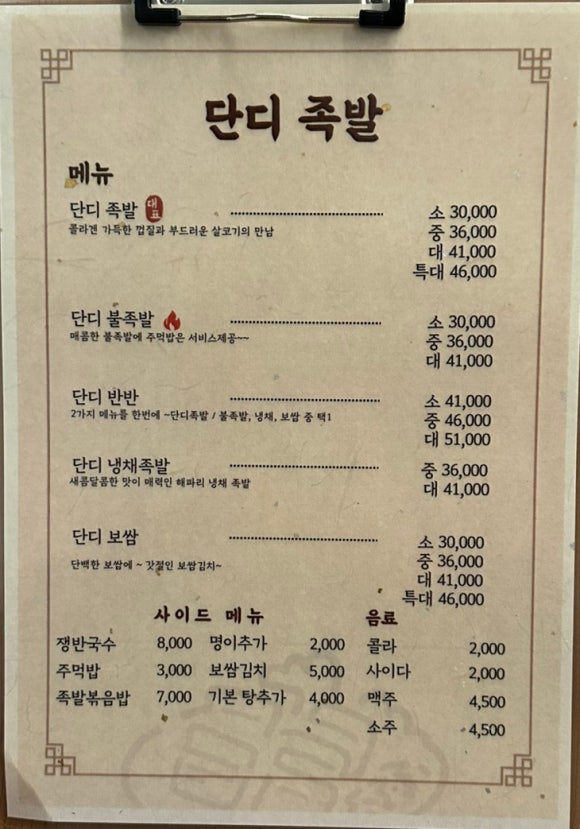 단디 족발
메뉴
단디 족발 대표 소 30,000
콜라겐 가득한 껍질과 부드러운 살코기의 만남 중 36,000
대 41,000
특대 46,000
단디 불족발 소 30,000
매콤한 불족발에 주먹밥은 서비스제공~~ 중 36,000
대 41,000
단디 반반 소 41,000
2가지 메뉴를 한번에 ~단디족발 / 불족발, 냉채, 보쌈 중 택1 중 46,000
대 51,000
단디 냉채족발 중 36,000
새콤달콤한 맛이 매력인 해파리 냉채 족발 대 41,000
단디 보쌈 소 30,000
담백한 보쌈에 ~ 갓절인 보쌈김치~ 중 36,000
대 41,000
특대 46,000
사이드 메뉴 음료
쟁반국수 8,000 명이추가 2,000 콜라 2,000
주먹밥 3,000 보쌈김치 5,000 사이다 2,000
족발볶음밥 7,000 기본 탕추가 4,000 맥주 4,500
소주 4,500